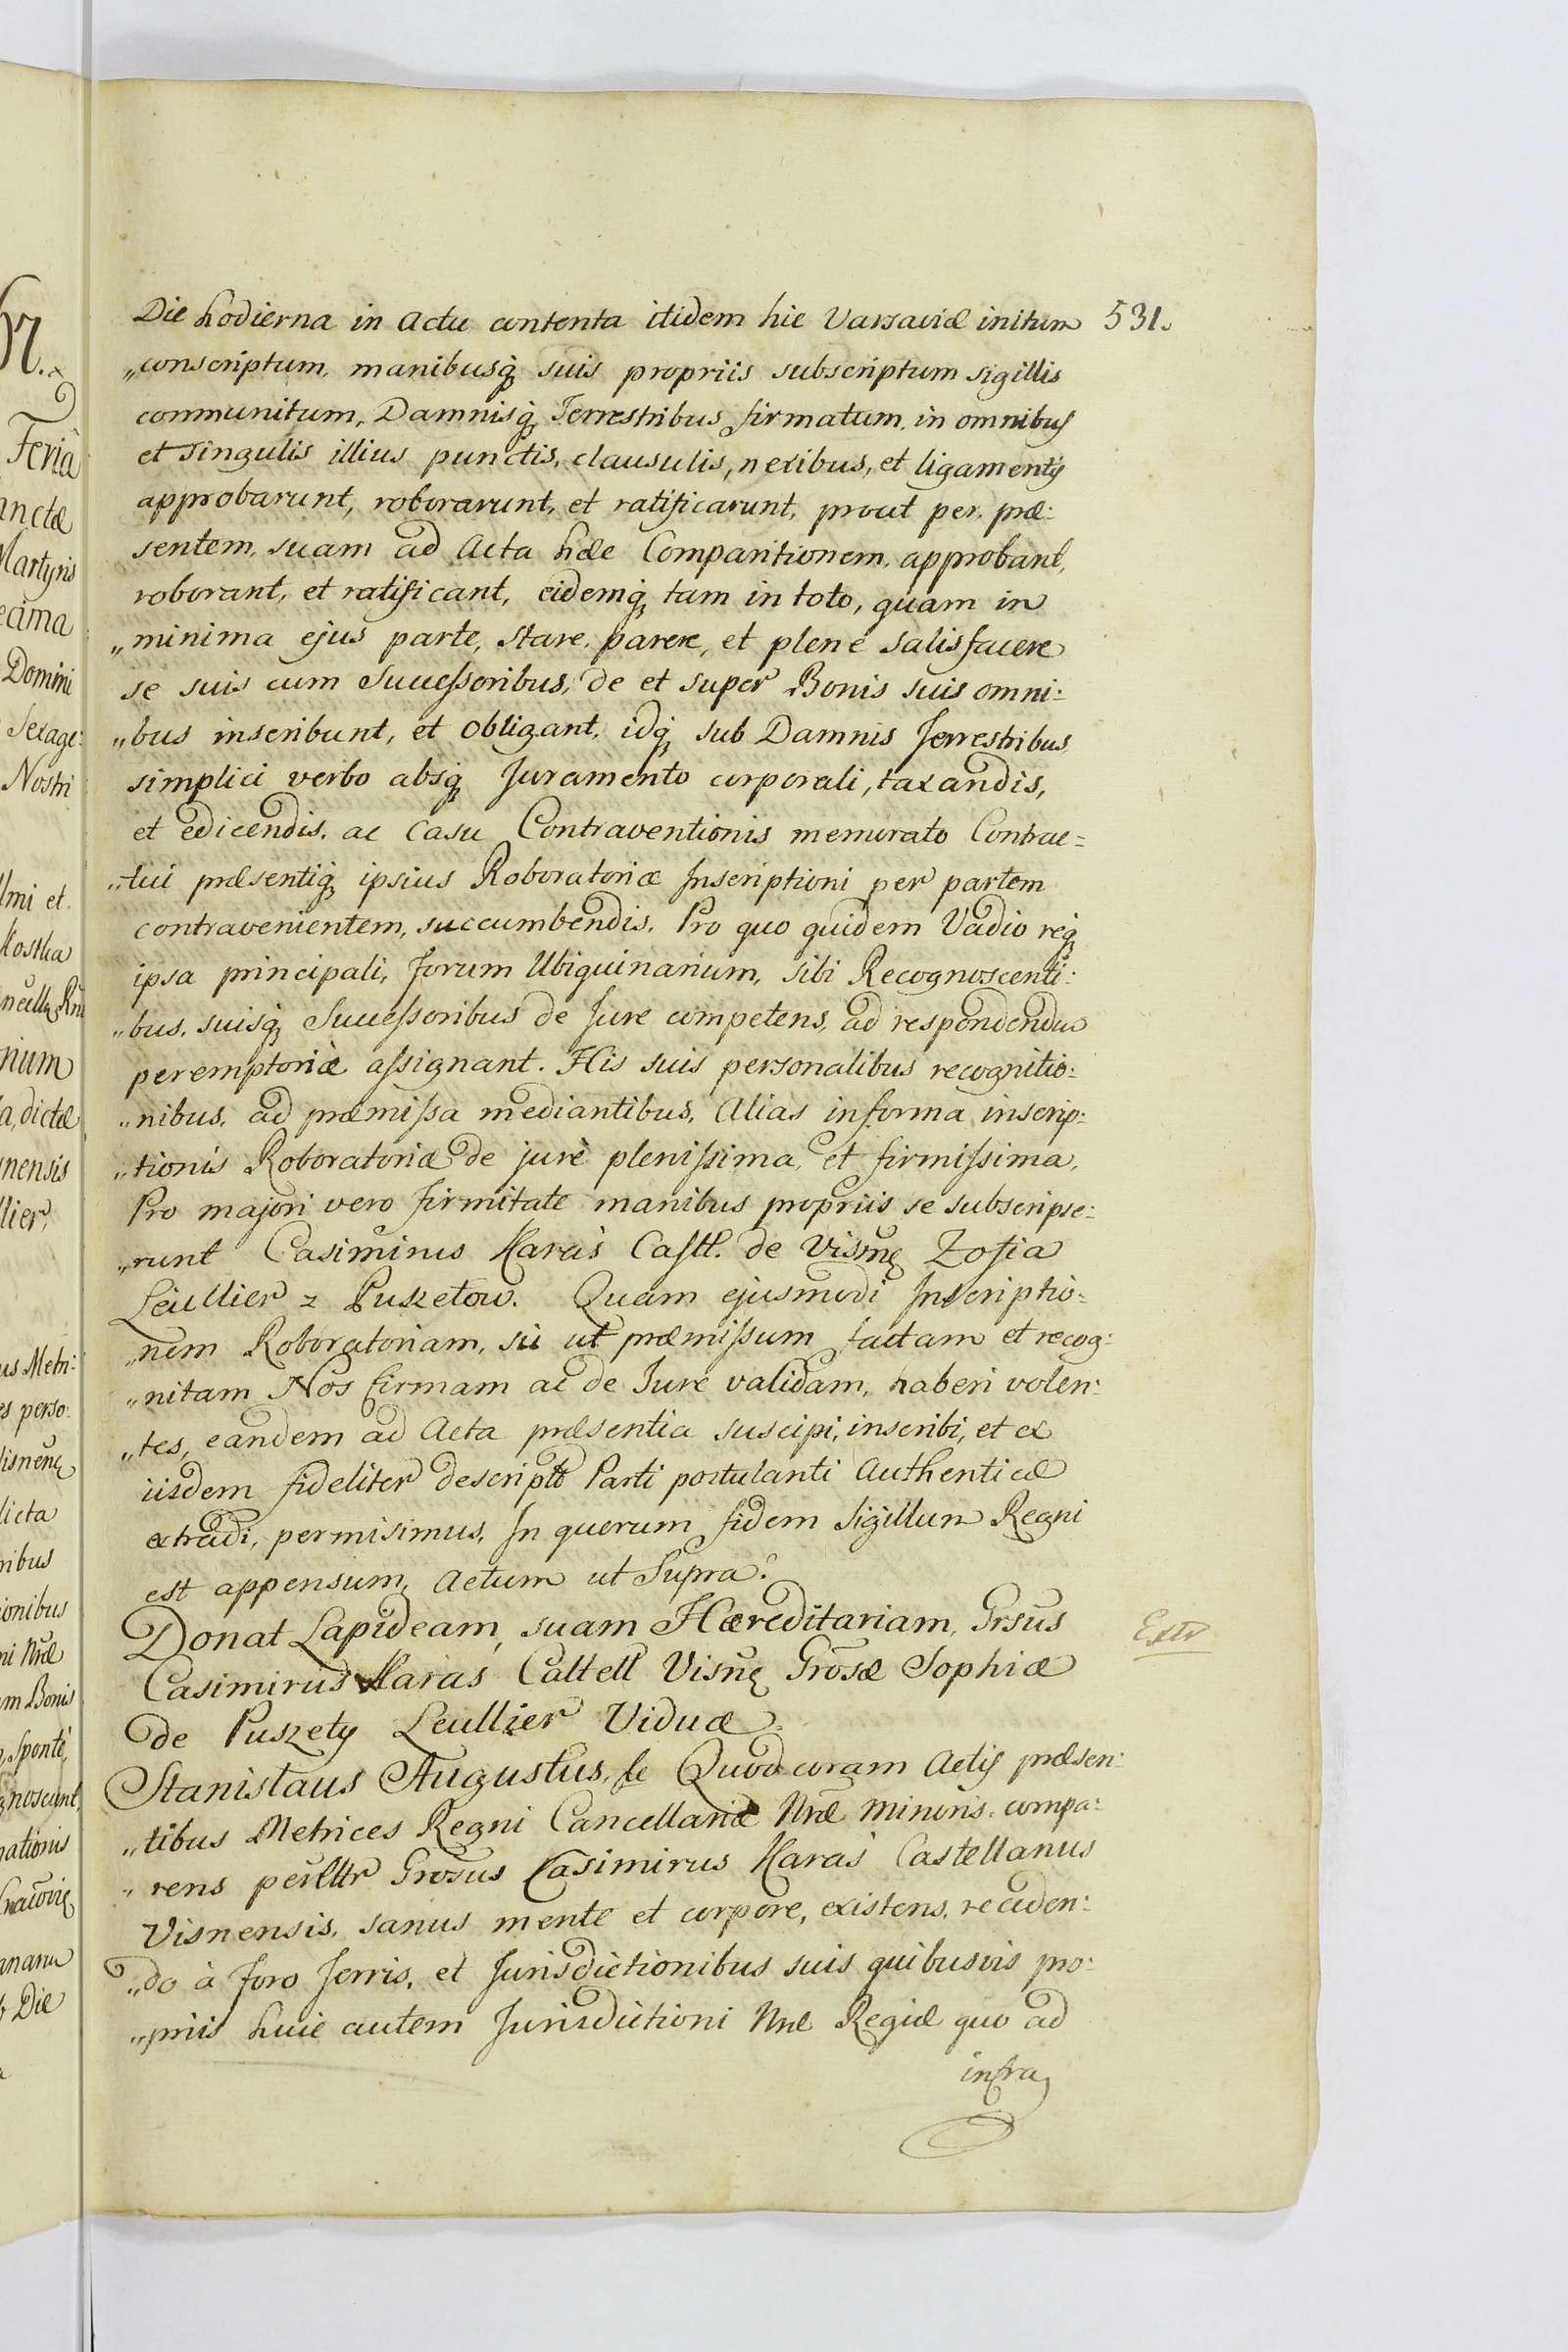 531.
Die hodierna in Actu contenta itidem hic Varsaviæ initum
„conscriptum, manibusq suis propriis subscriptum sigillis
communitum, Damnisq Terrestribus firmatum, in omnibus
et singulis illius punctis, clausulis, nexibus, et ligamentis
approbarunt, roborarunt, et ratificarunt, prout per præ:
sentem, suam ad Acta hæc Comparitionem, approbant,
roborant, et ratificant, eidemq tam in toto, quam in
„minima ejus parte, stare, parere, et plenè satisfacere
se suis cum Successoribus, de et super Bonis suis omni:
„bus inscribunt, et obligant, idq sub Damnis Terrestribus
simplici verbo absq Juramento corporali, taxandis,
et edicendis, ac Casu Contraventionis memorato Contrac=
„tui præsentiq ipsius Roboratoriæ Inscriptioni per partem
contravenientem, succumbendis. Pro quo quidem Vadio req
ipsa principali, forum Ubiquinarium, sibi Recognoscenti:
„bus, suisq Successoribus de Jure competens, ad respondendu
peremptoriè assignant. His suis personalibus recognitio:
„nibus, ad præmissa mediantibus, Alias in forma inscrip:
„tionis Roboratoriæ de jurè plenissima, et firmissima,
Pro majori vero firmitate manibus propriis se subscripse:
„runt Casimirus Karaś Castl. de Visnę Zofia
Leullier z Puszetow. Quam ejusmodi Inscriptio:
„nem Roboratoriam, sic ut præmissum factam et recog:
„nitam Nos firmam ac de Jurè validam, haberi volen:
„tes, eandem ad Acta præsentia suscipi, inscribi, et ex
iisdem fideliter descripto Parti postulanti Authenticè
extradi, permisimus, In quorum fidem Sigillum Regni
est appensum, Actum ut Supra.
Donat Lapideam, suam Hæreditariam, Grsus
Extr
Casimirus Karaś Caltell Visnę Grosæ Sophiæ
de Puszety Leullier Viduæ.
Stanislaus Augustus, &c Quod coram Actis præsen:
„tibus Metrices Regni Cancellariæ Nræ Minoris, compa:
„rens perIllr Grosus Casimirus Karaś Castellanus
Visnensis, sanus mente et corpore, existens, receden:
„do à foro Terris, et Jurisdictionibus suis quibusvis pro:
„priis huic autem Jurisdictioni Nræ Regiæ quo ad
infra